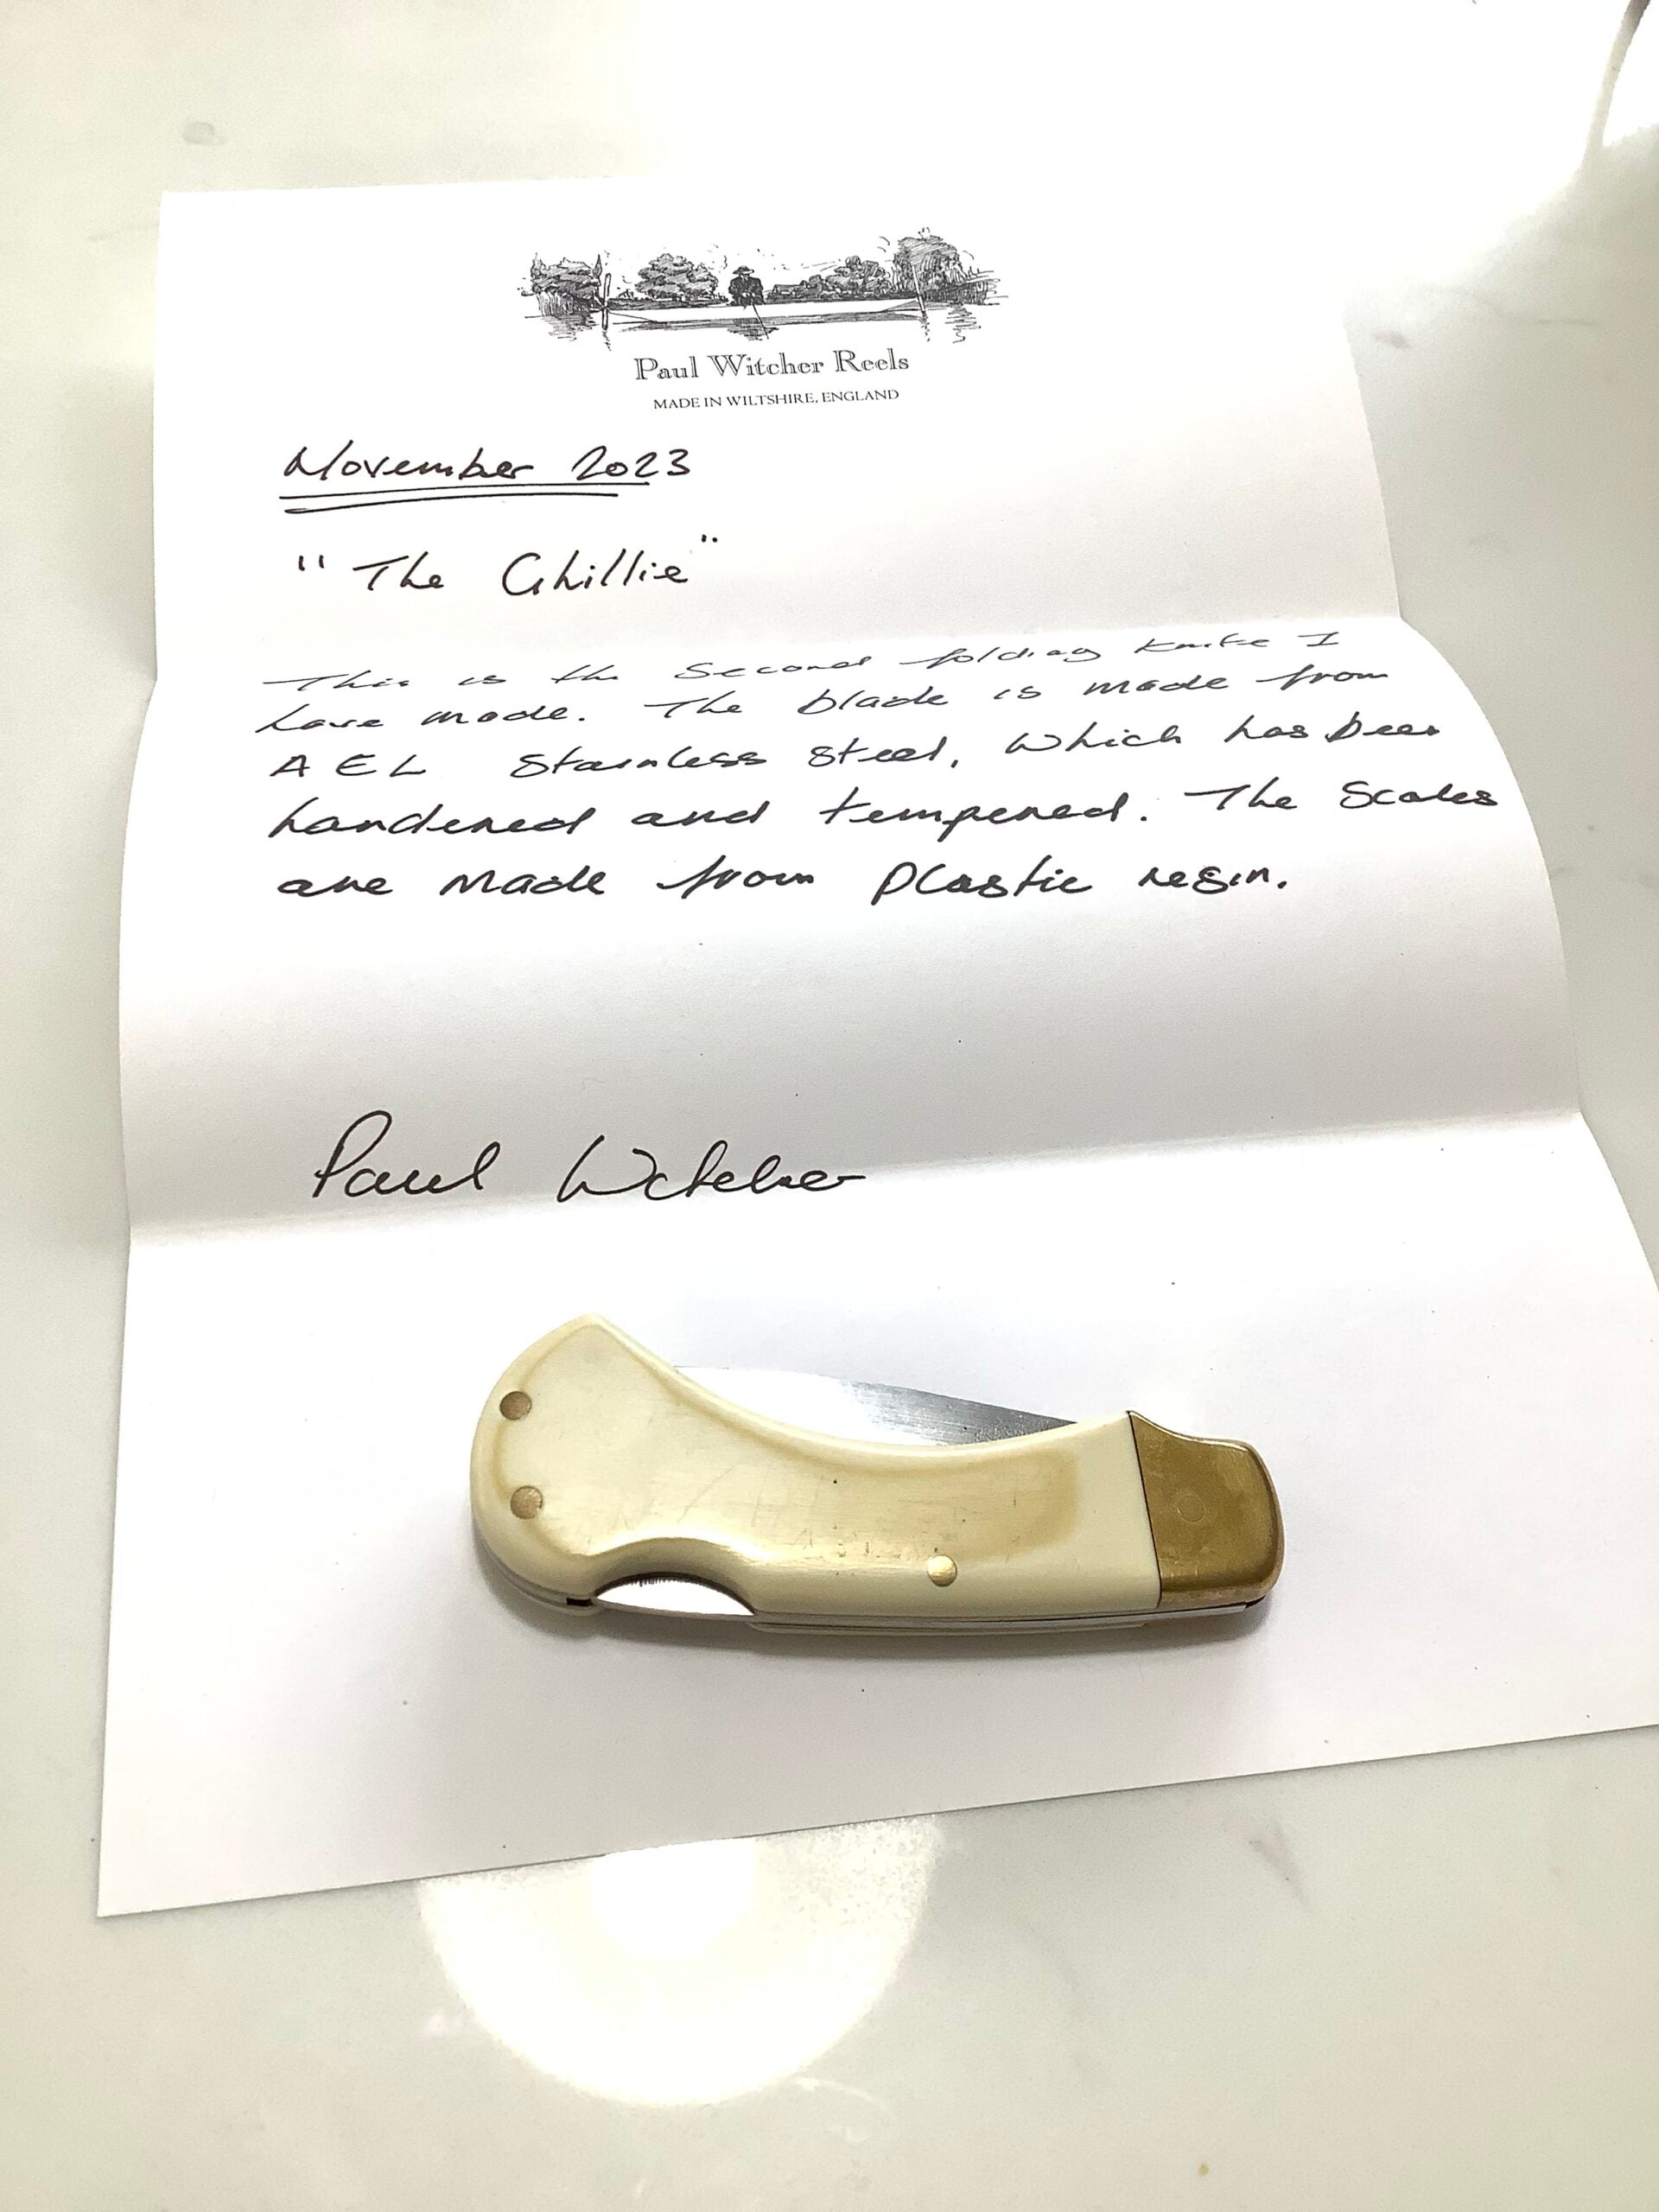 Paul Witcher Reels
MADE IN WILTSHIRE, ENGLAND
November 2023
"The Ghillie"
This is the second folding knife I
have made. The blade is made from
AEL Stainless steel, which has been
handened and tempened. The Scales
are made from plastic resin.
Paul Witcher